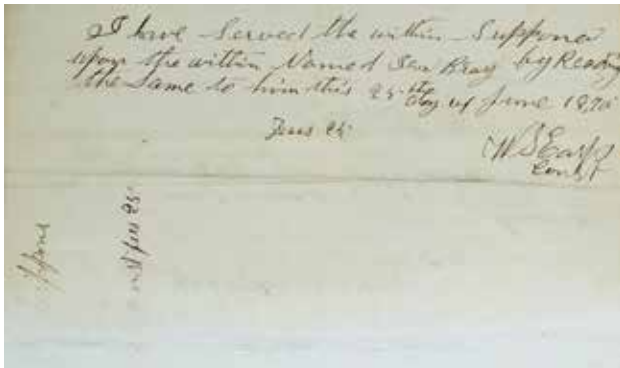 I have Served the within Suppona
upon the within Named Geo Bray by Reading
the Same to him this 25th day of June 1870
Fees 25
W S Earp
Const
const fees 25